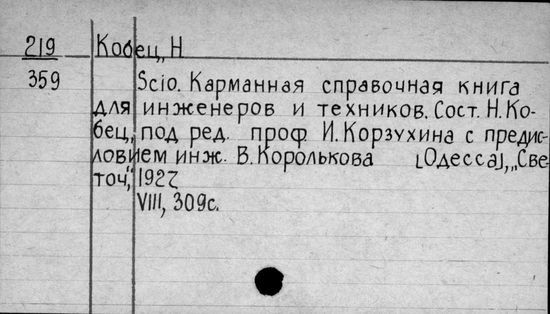 219 Кобец, Н
359 Scio. Карманная справочная книга
для инженеров и техников. Сост. Н. Ко-
бец, под ред. проф И. Корзухина с предис-
ловием инж. В. Королькова [Одесса], „Све-
точ", 1927
VIII, 309с.